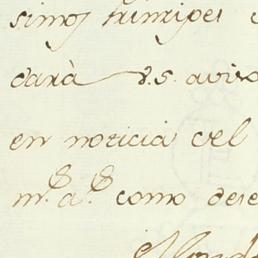 simos principes
darà V.S. aviso
en noticia del
m.s a.s como dese